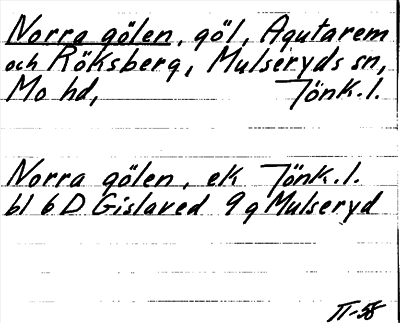 Norra gölen, göl, Agutarem
och Röksberg, Mulseryds sn,
Mo hd, Jönk.l.
Norra gölen, ek Jönk.l.
bl 6 D Gislaved 9 g Mulseryd
II-58